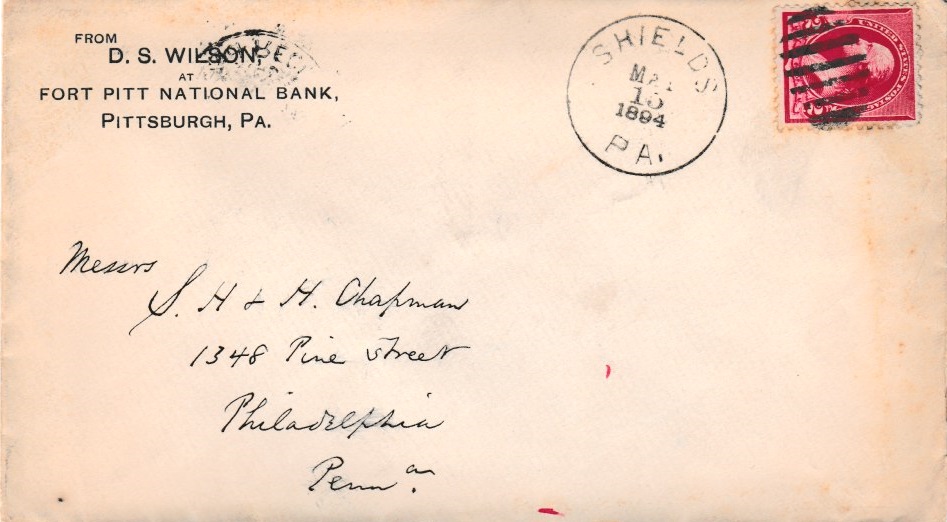 FROM
D. S. WILSON,
AT
FORT PITT NATIONAL BANK,
PITTSBURGH, PA.
SHIELDS
15
1894
PA.
UNITED STATES POSTAGE
Messrs
S. H & H. Chapman
1348 Pine Street
Philadelphia
Penna.